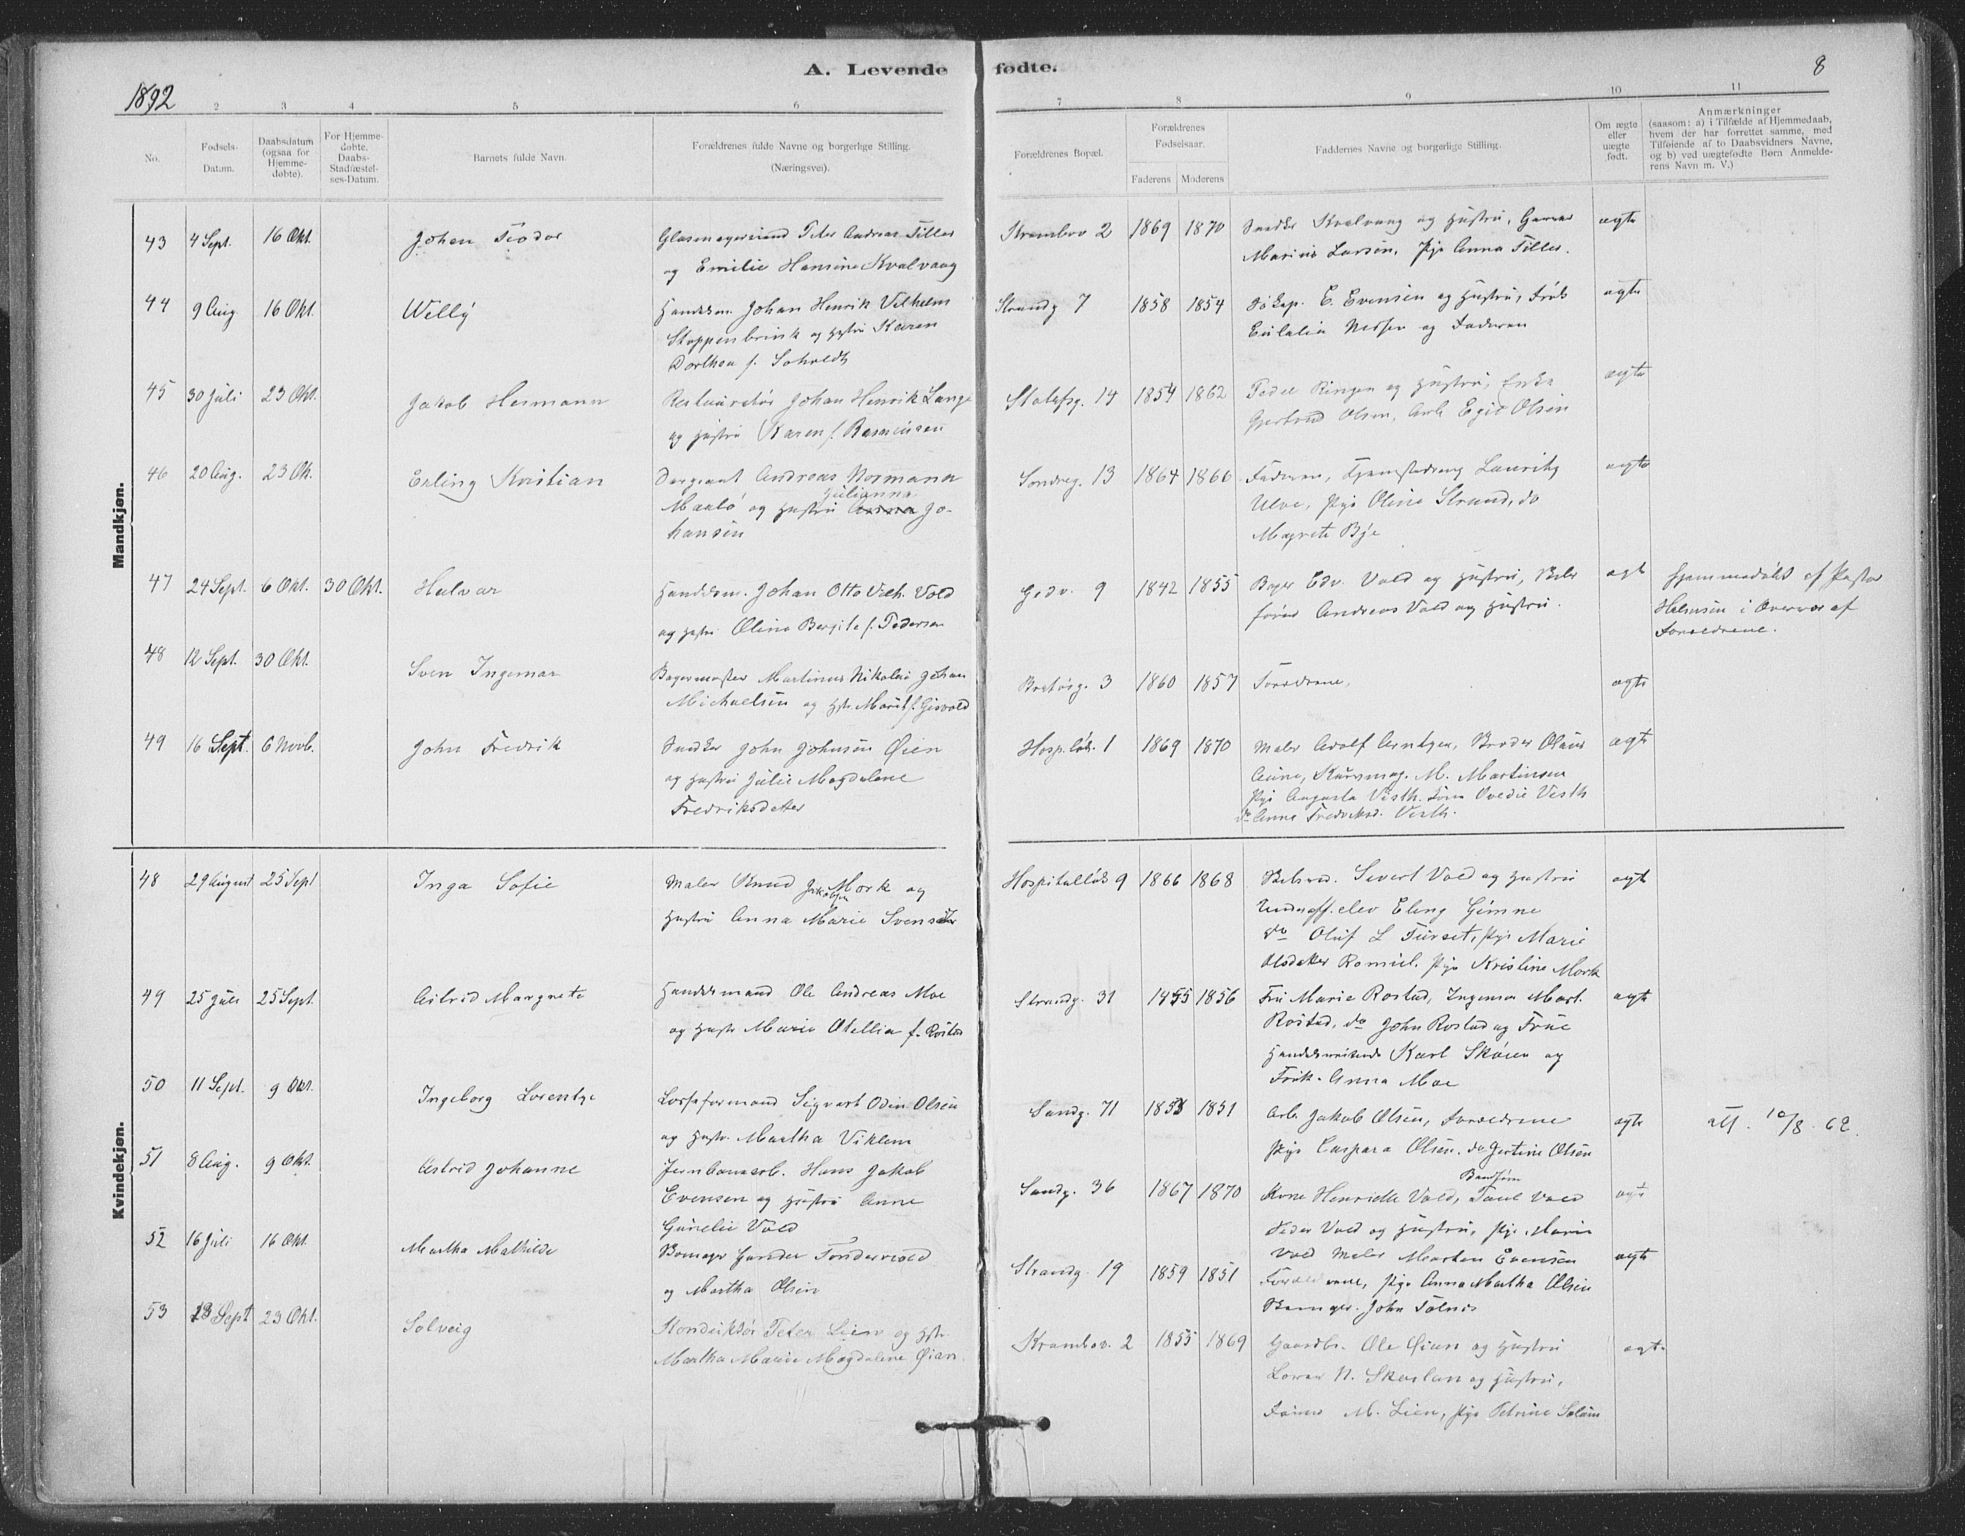 A. Levende fødte.
8
1892
2 3 4 5 6 7 8 9 10 11
No.
Fødsels-Datum.
Daabsdatum (ogsaa for Hjemme-døbte).
For Hjemme-døbte. Daabs-Stadfæstel-ses-Datum.
Barnets fulde Navn.
Forældrenes fulde Navne og borgerlige Stilling. (Næringsvei).
Forældrenes Bopæl.
Forældrenes Fødselsaar.
Faderens Moderens
Faddernes Navne og borgerlige Stilling.
Om ægte eller uægte født.
Anmærkninger
(saasom: a) i Tilfælde af Hjemmedaab,
hvem der har forrettet samme, med
Tilføiende af to Daabsvidners Navne,
og b) ved uægtefødte Børn Anmelde-
rens Navn m. V.)
Mandkjøn.
43 4 Sept. 16 Okt. Johan Teodor
Peter Andreas Tiller
og Emilie Hansine Kvalvaag
2 1869 1870 Snedker Kvalvaag og Hustru,
Marius Larsen, Pige Anna Tiller.
ægte
44 9 Aug. 16 Okt. Willy
Handelsm. Johan Henrik Vilhelm
Stoppenbrink og Hustru Karen
Dorthea f. Soholdt
Strandg 7 1858 1854 E. Evensen og Hustru, Frk
Eulalia og Faderen
ægte
45 30 Juli 23 Okt. Jakob Hermann
Restauratør Johan Henrik Lange
og Hustru Karen f. Rasmussen
Olafsg. 14 1854 1862 Peder Ringen og Hustru, Enke
Gjertrud Olsen, Arb. Olsen
ægte
46 20 Aug. 23 Ok. Erling Kristian
Sergeant Andreas Normann
Julianna
og Hustru Anna Jo-
hansen
Sondreg. 13 1864 1866 Faderen, Lauritz
Ulve, Pige Oline Strand, do
Magrete Bye
ægte
47 24 Sept. 6 Okt. 30 Okt. Halvar
Handelsm. Johan Otto Vilh. Vold
og Hustru Oline Bergite f. Pedersen
9 1842 1855 Bager Edv. Vold og Hustru,
fører Andreas Vold og Hustru.
ægt
Hjemmedøbt af Pastor
i Overvær af
Forældrene.
48 12 Sept. 30 Okt. Sven Ingemar
Bagermester Martinus Nikolai Johan
Michaelsen og Hstr. Marit f. Gisvold
3 1860 1857 Forældrene.
ægte
49 16 Sept. 6 Novb. John Fredrik
Snedker John Johnsen Øien
og Hustru Julie Magdalene
Fredriksdatter
Hosp.løk. 1 1869 1870 Maler Adolf Arntzen, Broder Olaus
Aune, Kurvmag. M. Martinsen
Pige Augusta Visth. Ovedie Vesth
do Anna Fredriksd. Visth.
ægte
Kvindekjøn.
48 29 August 25 Sept Inga Sofie
Maler Knud Jakobsen Mork og
Hustru Anna Marie
Hospitalløk 9 1866 1868 Sivert Vold og Hustru
Underoff.elev Eling Gimne
do Oluf L Furset, Pige Marie
Pige Kristine Mork
ægt
49 25 Juli 25 Sept. Astrid Margrete
Handelsmand Ole Andreas Moe
og Hustr Marie Otellia f. Rostad
Strandg. 31 1855 1856 Fru Marie Rostad, Ingeniør Mart.
Rostad, do John Rostad og Frue
Handelsreisende Karl Skøien og
Frøk. Anna Moe
ægte
50 11 Sept. 9 Okt. Ingeborg Lorentze
Losseformand Sigvart Odin Olsen
og Hustr. Martha Viklem
Sandg. 71 1851 Arb. Jakob Olsen, Forældrene
Pige Caspara Olsen. do Gjertine Olsen
ægte
att. 10/8. 62.
51 8 Aug. 9 Okt. Astrid Johanne
Jernbanearb. Hans Jakob
Evensen og Hustru Anne
Gunelie Vold
Sandg. 36 1867 1870 Kone Henriette Vold, Paul Vold
Peder Vold og Hustru, Pige Marie
Vold Maler Morten Evensen
ægte
52 16 Juli 16 Okt. Martha Mathilde
Bomager Gunder Tondervold
og Martha Olsen
Strandg. 19 1859 1851 Forældrene, Pige Anna Martha Olsen
John
ægte
53 23 Sept 23 Okt. Solveig
Konduktør Peter Lien og Hstr.
Martha Marie Magdalene Øian.
Krambov. 2 1855 1869 Gaardbr. Ole Øian og Hustru
N. Skarlan og Hustru,
M. Lien, Pige Petrine Solum
ægt.